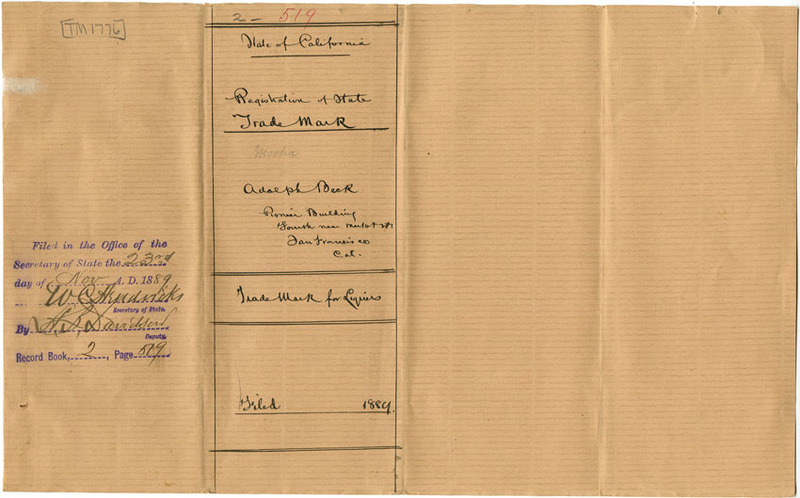 TM 1776
2 - 519
State of California
Registration of State
Trade Mark
Adolph Beck
Pionier Building
Fourth near Market St.
San Francisco
Cal.
Trade Mark for Liquors
Filed 1889.
Filed in the Office of the
Secretary of State the 23rd
day of Nov A. D. 1889
W C Hendricks
Secretary of State.
By Davidson
Deputy.
Record Book, 2, Page 519